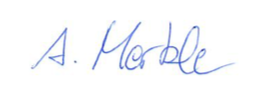 A. Merkle